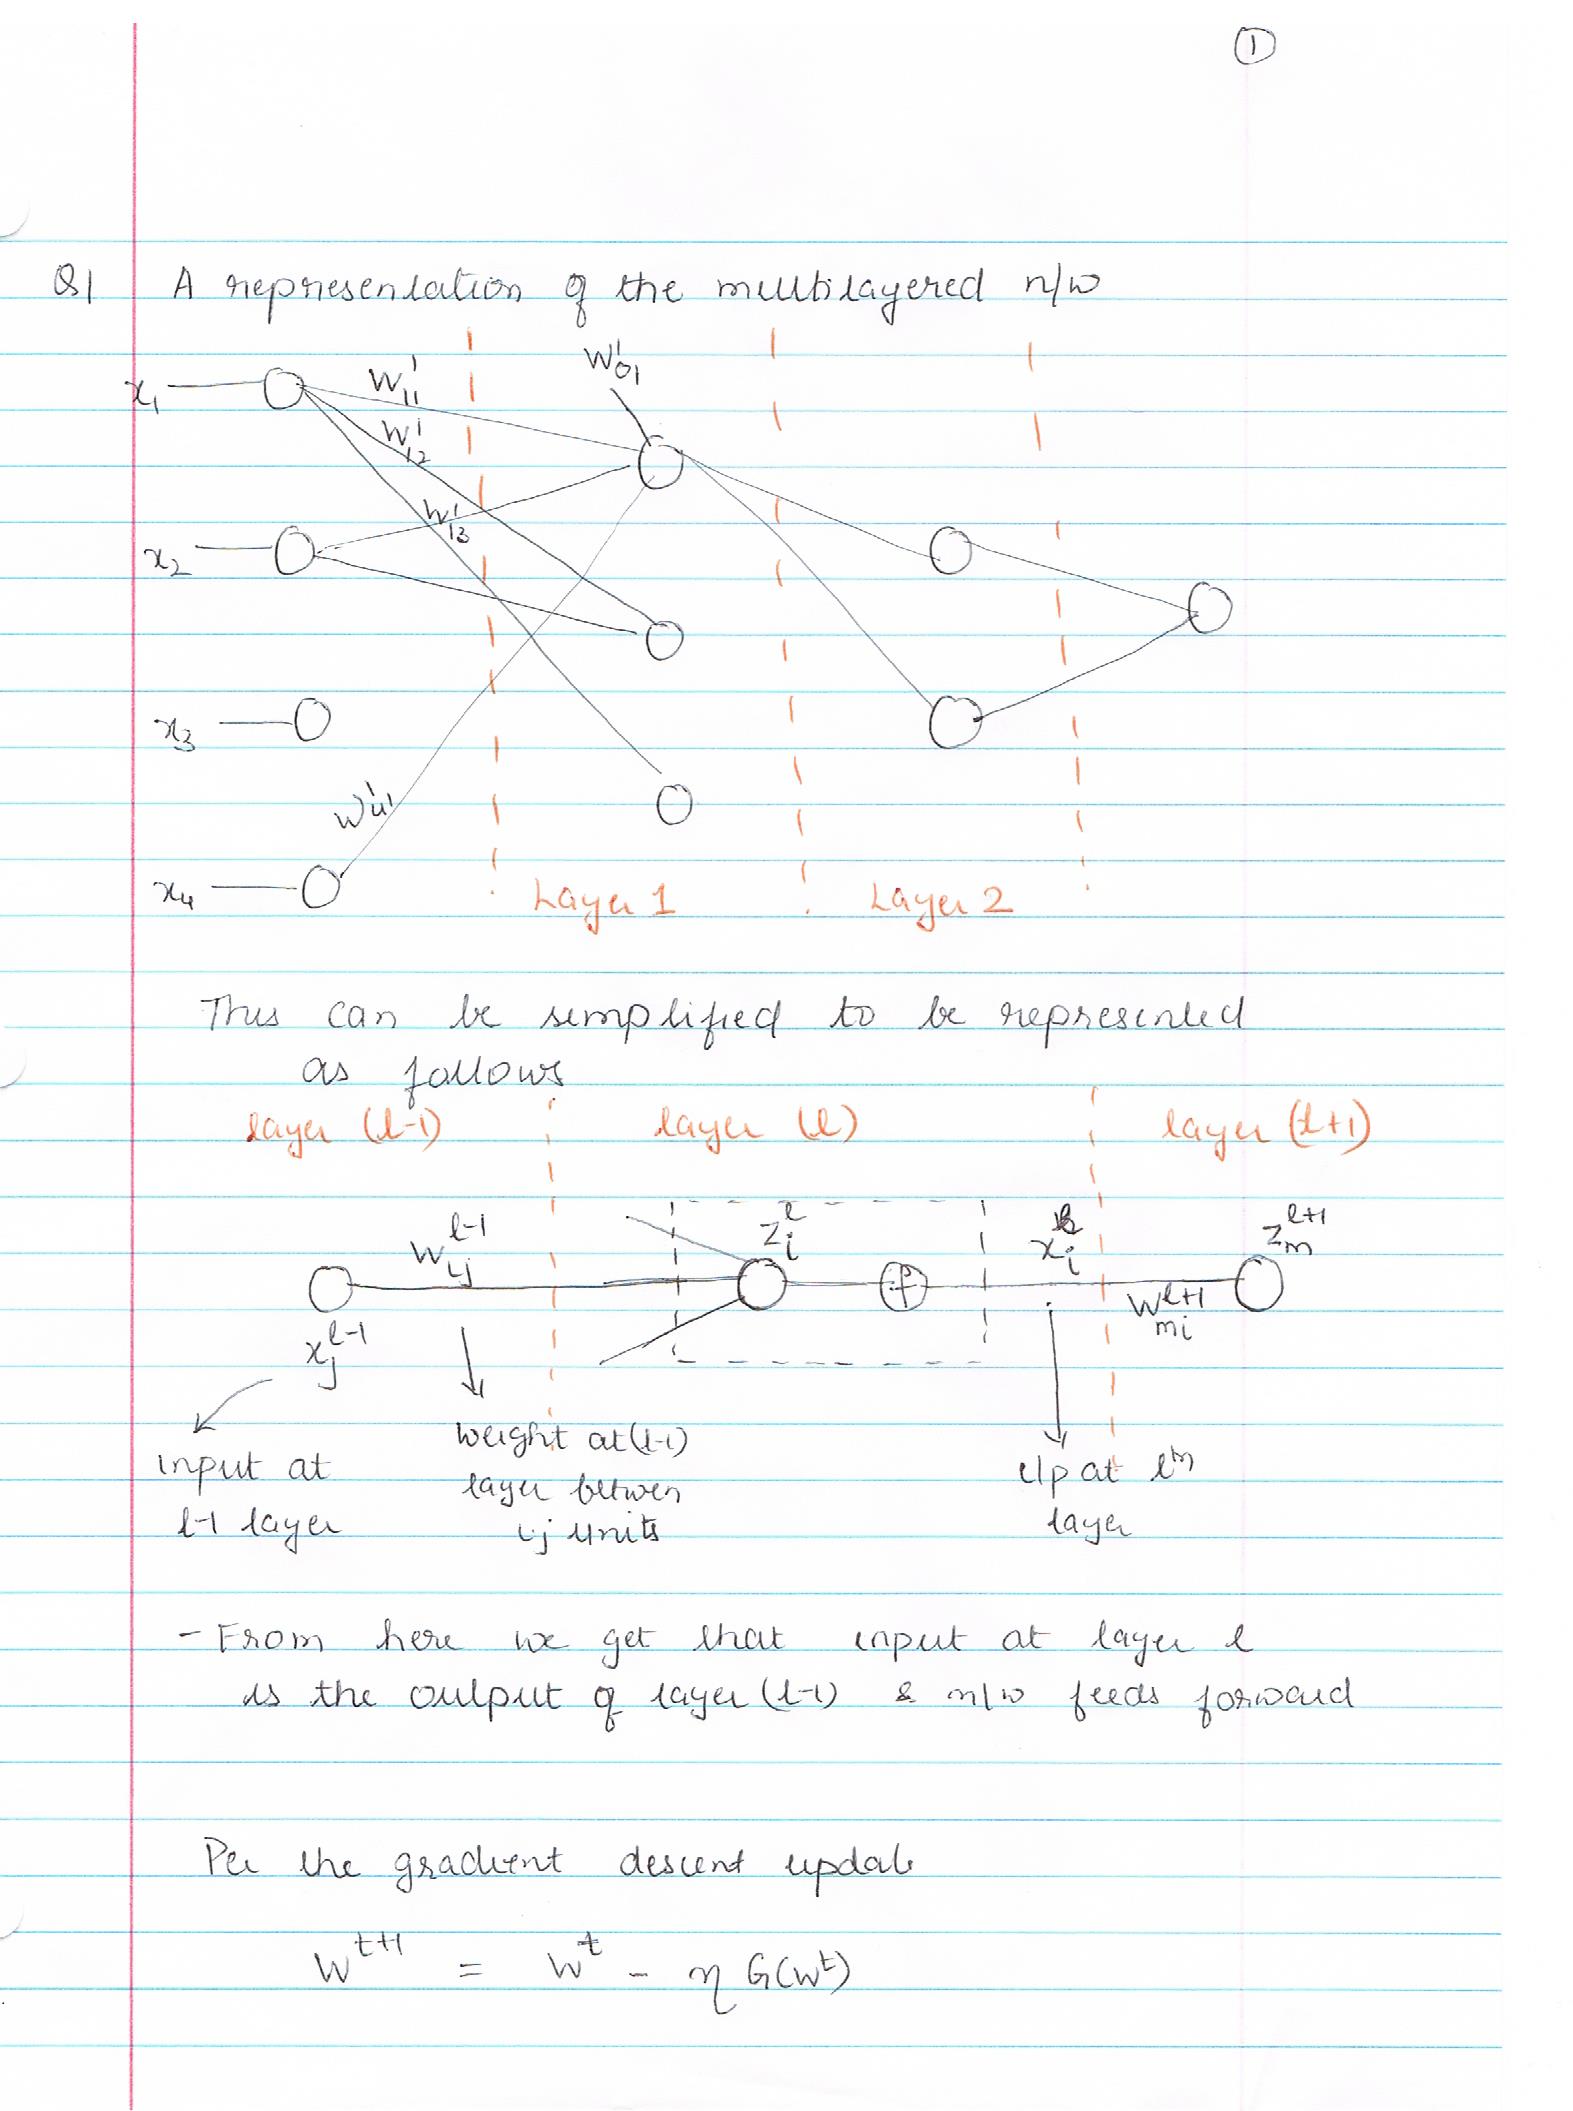 1
Q1 A representation of the multilayered n/w
x₁ W¹₁₁ W¹₀₁
W¹₁₂
W¹₁₃
x₂
x₃
W¹₄₁
x₄ Layer 1 Layer 2
This can be simplified to be represented
as follows
layer (l-1) layer (l) layer (l+1)
W_ij^{l-1} Z_i^l x_i^l Z_m^{l+1}
W_mi^{l+1}
x_j^{l-1}
input at weight at (l-1) at lth
l-1 layer layer between layer
ij units
- From here we get that input at layer l
is the output of layer (l-1) & n/w feeds forward
Per the gradient descent update
W^{t+1} = W^t - η G(W^t)